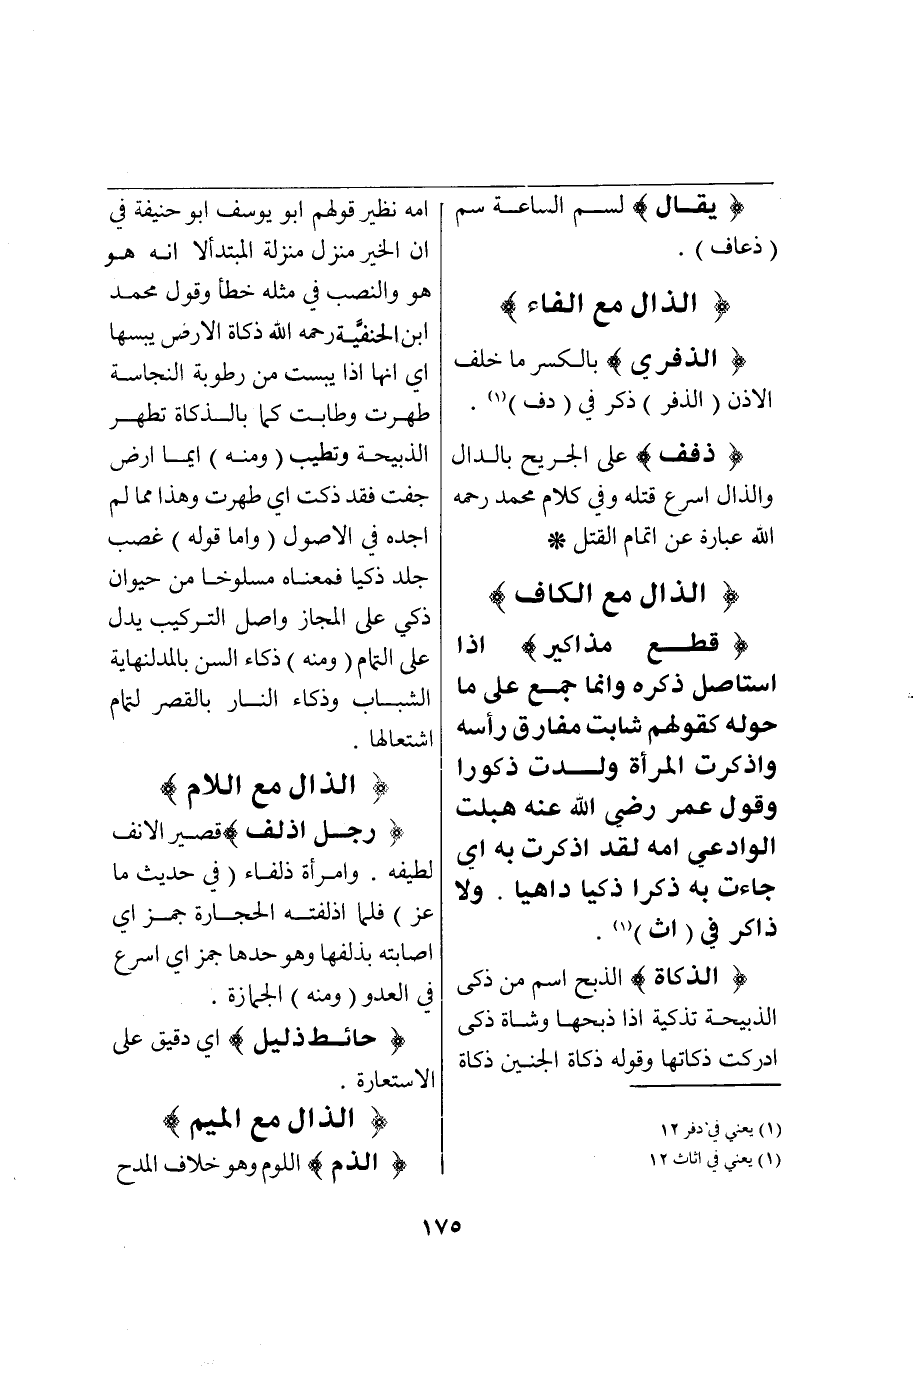 ﴿ يقال ﴾ لسم الساعة سم
( ذعاف ) .
﴿ الذال مع الفاء ﴾
﴿ الذفرى ﴾ بالكسر ما خلف
الاذن ( الذفر ) ذكر في ( دف )(١) .
﴿ ذفف ﴾ على الجريح بالدال
والذال اسرع قتله وفي كلام محمد رحمه
الله عبارة عن اتمام القتل *
﴿ الذال مع الكاف ﴾
﴿ قطع مذاكير ﴾ اذا
استاصل ذكره وانما جمع على ما
حوله كقولهم شابت مفارق رأسه
واذكرت المرأة ولدت ذكورا
وقول عمر رضي الله عنه هبلت
الوادعي امه لقد اذكرت به اي
جاءت به ذكرا ذكيا داهيا . ولا
ذاكر في ( اث )(١) .
﴿ الذكاة ﴾ الذبح اسم من ذكى
الذبيحة تذكية اذا ذبحها وشاة ذكى
ادركت ذكاتها وقوله ذكاة الجنين ذكاة
(١) يعني في دفر ١٢
(١) يعني في اثاث ١٢
امه نظير قولهم ابو يوسف ابو حنيفة في
ان الخبر منزل منزلة المبتدألا انه هو
هو والنصب في مثله خطأ وقول محمد
ابن الحنفيَّة رحمه الله ذكاة الارض يبسها
اي انها اذا يبست من رطوبة النجاسة
طهرت وطابت كما بالذكاة تطهر
الذبيحة وتطيب ( ومنه ) ايما ارض
جفت فقد ذكت اي طهرت وهذا مما لم
اجده في الاصول ( واما قوله ) غصب
جلد ذكيا فمعناه مسلوخا من حيوان
ذكي على المجاز واصل التركيب يدل
على التمام ( ومنه ) ذكاء السن بالمدلنهاية
الشباب وذكاء النار بالقصر لتمام
اشتعالها .
﴿ الذال مع اللام ﴾
﴿ رجل اذلف ﴾ قصير الانف
لطيفه . وامرأة ذلفاء ( في حديث ما
عز ) فلما اذلفته الحجارة جمز اي
اصابته بذلفها وهو حدها جمز اي اسرع
في العدو ( ومنه ) الجمازة .
﴿ حائط ذليل ﴾ اي دقيق على
الاستعارة .
﴿ الذال مع الميم ﴾
﴿ الذم ﴾ اللوم وهو خلاف المدح
١٧٥